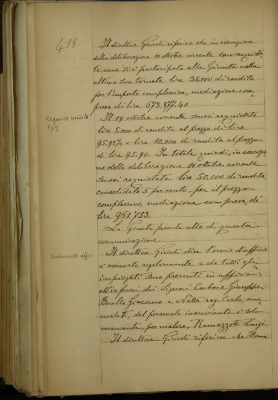 418
Il direttore Giudi riferisce che in esecuzione
della deliberazione 11 ottobre corrente
come si è partecipato alla Giunta nella
ultima sua tornata lire 35000 di rendita
per l'importo complessivo, mediazione com
presa di lire 673.877.40
Acquisto rendita
5%
Il 19 ottobre corrente sonosi acquistate
lire 5.000 di rendita al prezzo di lire
95.92½ e lire 10.000 di rendita al prezzo
di lire 95.90. In totale, quindi, in esecuzio
ne della deliberazione 11 ottobre corrente
sonosi acquistate lire 50,000 di rendita
consolidato 5 per cento, per il prezzo
complessivo, mediazione compresa, di
lire 961,753.
La Giunta prende atto di questa
comunicazione.
Il direttore Giudi che l'orario d'ufficio
è osservato regolarmente e che tutti gli
impiegati sono presenti in ufficio
all'infuori dei Signori Carlone Giuseppe,
Borella Giacomo e Natta rag. Carlo, am
malati; del personale inserviente è solo
mancante, per malattia Ramazzotti Luigi.
Il direttore Giudi riferisce che